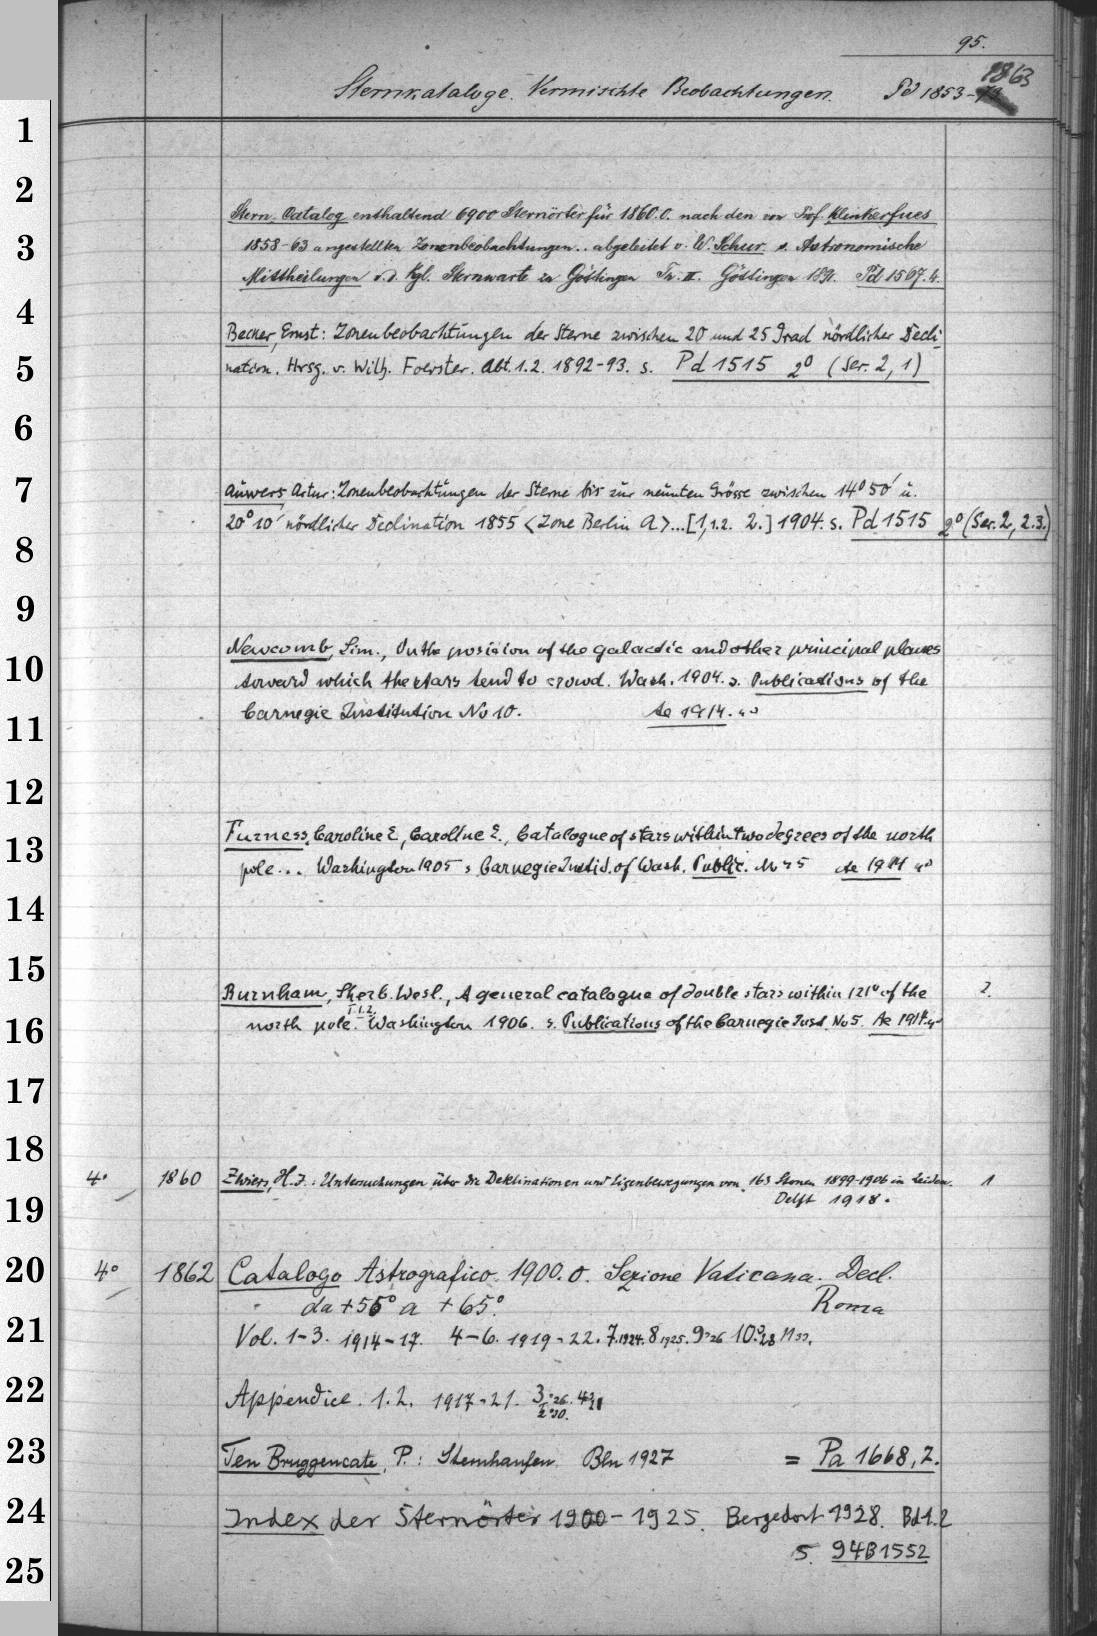 95.
Sternkataloge. Vermischte Beobachtungen. Pd 1853-1863
1
2
Stern-Catalog enthaltend 6900 Sternörter für 1860.0. nach den von Prof. Klinkerfues
3
1858-63 angestellten Zonenbeobachtungen.. abgeleitet v. W. Schur s. Astronomische
Mittheilungen v. d. Kgl. Sternwarte zu Göttingen Th. II. Göttingen 1891. Pd 1567. 4.
4
Becker, Ernst: Zonenbeobachtungen der Sterne zwischen 20 und 25 Grad nördlicher Decli-
5
nation. Hrsg. v. Wilh. Foerster. Abt. 1.2. 1892-93. s. Pd 1515 2° (Ser. 2, 1)
6
7
Auwers, Artur: Zonenbeobachtungen der Sterne bis zur neunten Grösse zwischen 14° 50' u.
20° 10' nördlicher Declination 1855 <Zone Berlin A>...[1,1.2. 2.] 1904. s. Pd 1515 2° (Ser. 2, 2.3.)
8
9
Newcomb, Sim., On the posision of the galactic and other principal planes
10
toward which the stars tend to crowd. Wash. 1904. s. Publications of the
Carnegie Institution No 10. Ae 1914. 4°
11
12
Furness, Caroline E, Caroline E., Catalogue of stars within two degrees of the north
13
pole... Washington 1905 s Carnegie Instit. of Wash. Public. No 45 Ae 1914 4°
14
15
Burnham, Sherb. Wesl., A general catalogue of double stars within 121° of the 2.
T. 1.2.
16
north pole. Washington 1906. s. Publications of the Carnegie Inst. No 5. Ae 1914. 4°
17
18
4° 1860 Zwiers, H. J.: Untersuchungen über die Deklinationen und Eigenbewegungen von 163 Sternen 1899-1906 in Leiden. 1
19
Delft 1918.
20
4° 1862 Catalogo Astrografico 1900.0. Sezione Vaticana. Decl.
da +55° a +65°. Roma
21
Vol. 1-3. 1914-17. 4-6. 1919-22. 7. 1924. 8 1925. 9 26 10. 28
22
Appendice. 1.2. 1917-21. 3
23
Ten Bruggencate, P.: Sternhaufen. Bln 1927 = Pa 1668, 7.
24
Index der Sternörter 1900-1925. Bergedorf 1928. Bd 1.2
s. 94B1552
25